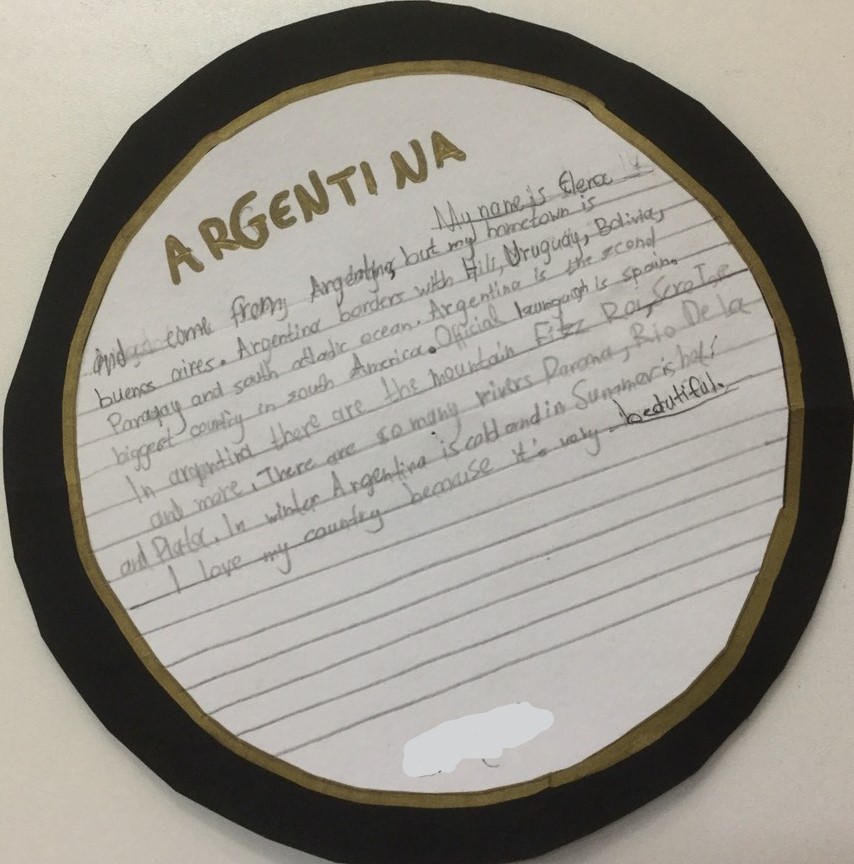 ARGENTINA
My name is Elena
and come from Argentina, but my hometown is
buenos aires. Argentina borders with Hili, Uruguay, Bolivia,
Paragay and south atladic ocean. Argentina is the second
biggest country in south America. Official launguagh is spain.
In argentina there are the mountain Fitz Roy,
and more. There are so many rivers Parana, Rio De la
and Plata. In winter Argentina is cold and in Summer is hot!
I love my country because it's very beautiful.